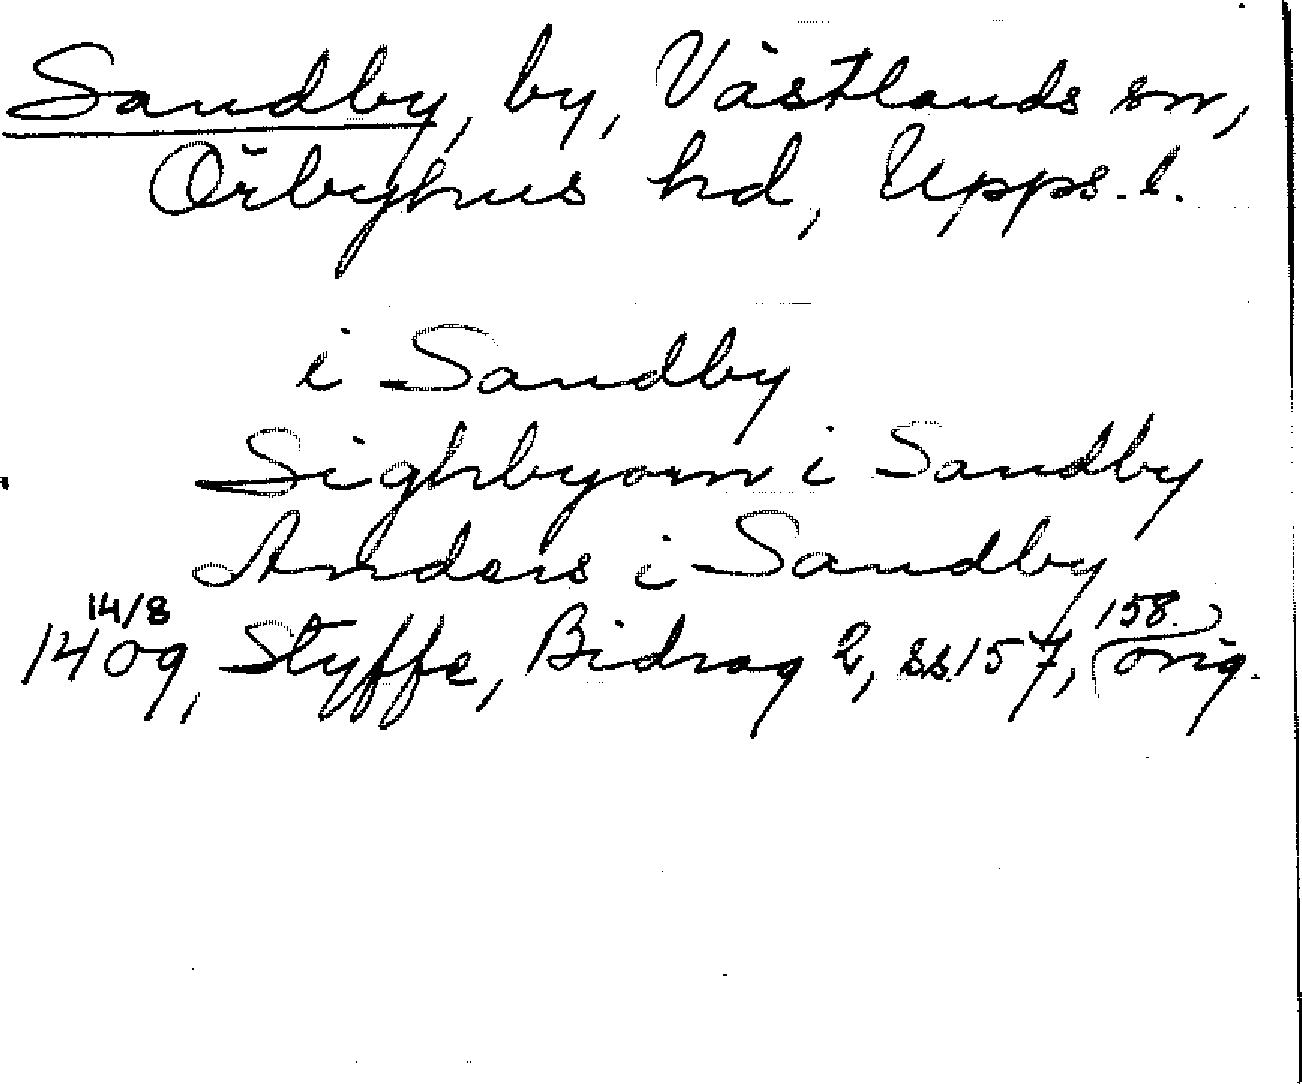 Sandby, by, Västlands sn,
Örbyhus hd, Upps. l.
i Sandby
Sighbyorn i Sandby
Anders i Sandby
14/8 158.
1409, Styffe, Bidrag 2, ss. 157, orig.